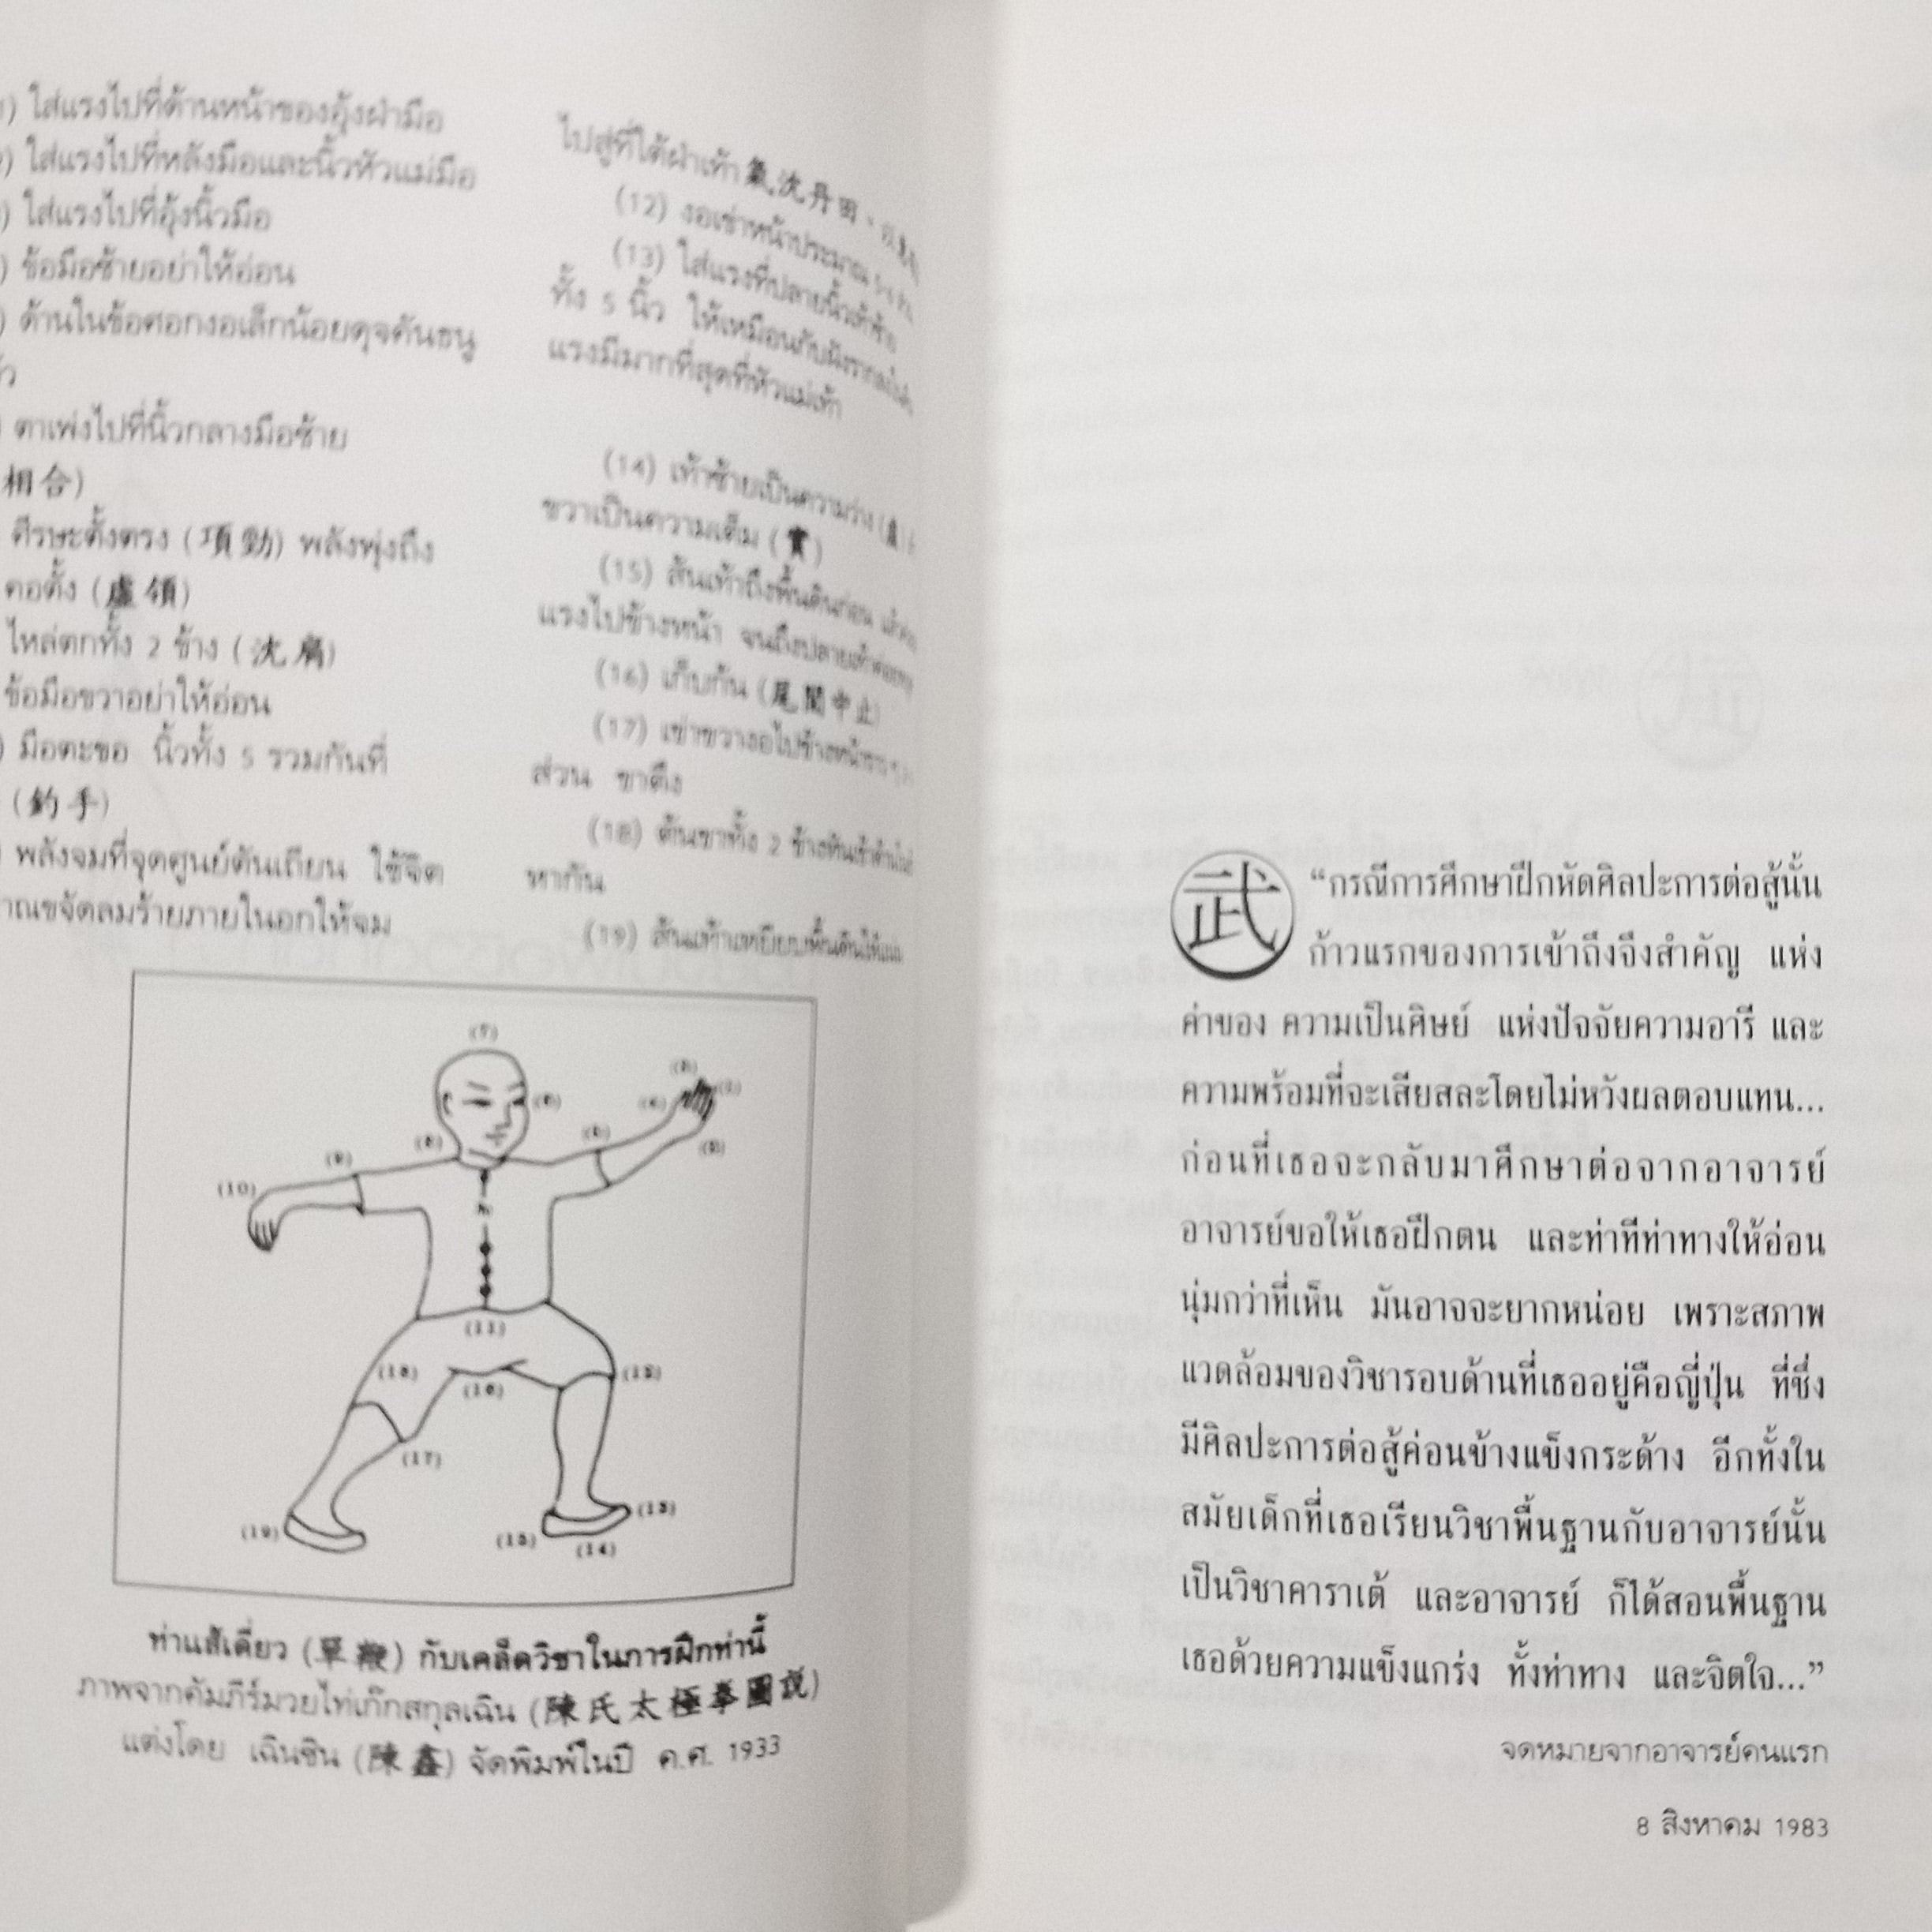 ใส่แรงไปที่ด้านหน้าของอุ้งฝ่ามือ
ใส่แรงไปที่หลังมือและนิ้วหัวแม่มือ
ใส่แรงไปที่อุ้งนิ้วมือ
ข้อมือซ้ายอย่าให้อ่อน
ด้านในข้อศอกงอเล็กน้อยดุจคันธนู
ตาเพ่งไปที่นิ้วกลางมือซ้าย
相合)
ศีรษะตั้งตรง (項勁) พลังพุ่งถึง
คอตั้ง (虛領)
ไหล่ตกทั้ง 2 ข้าง (沈肩)
ข้อมือขวาอย่าให้อ่อน
มือตะขอ นิ้วทั้ง 5 รวมกันที่
(釣手)
พลังจมที่จุดศูนย์ตันเถียน ใช้จิต
ขจัดลมร้ายภายในอกให้จม
ไปสู่ที่ใต้ฝ่าเท้า 氣沈丹田
(12) งอเข่าหน้าประมาณ
(13) ใส่แรงที่ปลายนิ้วเท้าซ้าย
ทั้ง 5 นิ้ว ให้เหมือนกับฝังราก
แรงมีมากที่สุดที่หัวแม่เท้า
(14) เท้าซ้ายเป็นความว่าง
ขวาเป็นความเต็ม (實)
(15) ส้นเท้าถึงพื้นดินก่อน
แรงไปข้างหน้า จนถึงปลายเท้า
(16) เก็บก้น (尾閭中止)
(17) เข่าขวางอไปข้างหน้า
ส่วน ขาตึง
(18) ต้นขาทั้ง 2 ข้างหันเข้าด้านใน
หากัน
(19) ส้นเท้าเหยียบพื้นดินให้แน่น
(7)
(10)
(9)
(8)
(11)
(18)
(16)
(12)
(17)
(19)
(15)
(13)
(14)
ท่าแส้เดี่ยว (單鞭) กับเคล็ดวิชาในการฝึกท่านี้
ภาพจากคัมภีร์มวยไท่เก๊กสกุลเฉิน (陳氏太極拳圖説)
แต่งโดย เฉินซิน (陳鑫) จัดพิมพ์ในปี ค.ศ. 1933
武 “กรณีการศึกษาฝึกหัดศิลปะการต่อสู้นั้น
ก้าวแรกของการเข้าถึงจึงสำคัญ แห่ง
ค่าของ ความเป็นศิษย์ แห่งปัจจัยความอารี และ
ความพร้อมที่จะเสียสละโดยไม่หวังผลตอบแทน...
ก่อนที่เธอจะกลับมาศึกษาต่อจากอาจารย์
อาจารย์ขอให้เธอฝึกตน และท่าทีท่าทางให้อ่อน
นุ่มกว่าที่เห็น มันอาจจะยากหน่อย เพราะสภาพ
แวดล้อมของวิชารอบด้านที่เธออยู่คือญี่ปุ่น ที่ซึ่ง
มีศิลปะการต่อสู้ค่อนข้างแข็งกระด้าง อีกทั้งใน
สมัยเด็กที่เธอเรียนวิชาพื้นฐานกับอาจารย์นั้น
เป็นวิชาคาราเต้ และอาจารย์ ก็ได้สอนพื้นฐาน
เธอด้วยความแข็งแกร่ง ทั้งท่าทาง และจิตใจ...”
จดหมายจากอาจารย์คนแรก
8 สิงหาคม 1983